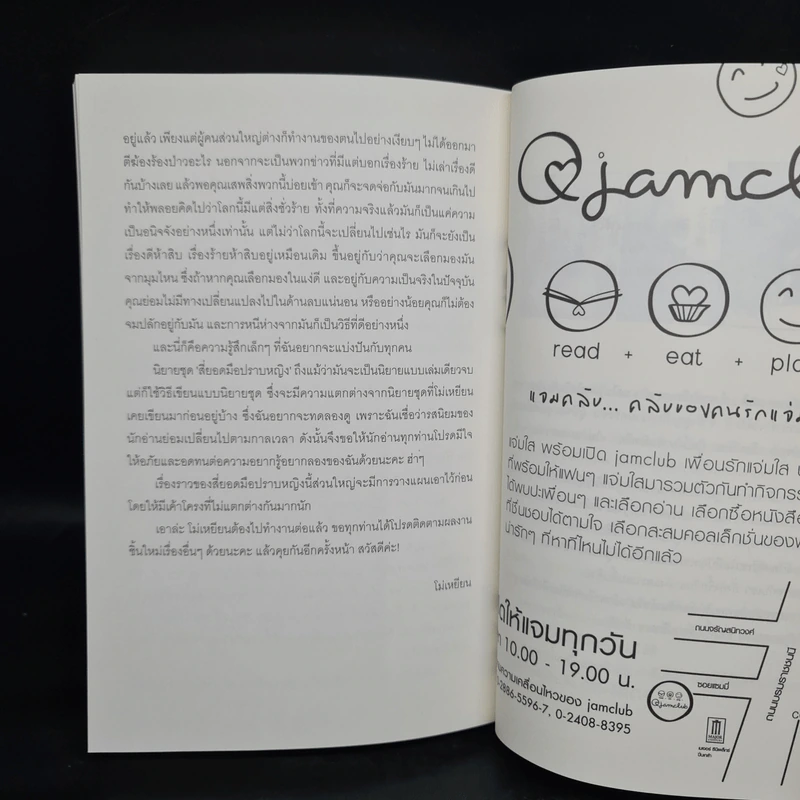 อยู่แล้ว เพียงแต่ผู้คนส่วนใหญ่ต่างก็ทำงานของตนไปอย่างเงียบๆ ไม่ได้ออกมา
ตีฆ้องร้องป่าวอะไร นอกจากจะเป็นพวกข่าวที่มีแต่บอกเรื่องร้าย ไม่เล่าเรื่องดี
กันบ้างเลย แล้วพอคุณเสพสิ่งพวกนี้บ่อยเข้า คุณก็จะจดจ่อกับมันมากจนเกินไป
ทำให้พลอยคิดไปว่าโลกนี้มีแต่สิ่งชั่วร้าย ทั้งที่ความจริงแล้วมันก็เป็นแค่ความ
เป็นอนิจจังอย่างหนึ่งเท่านั้น แต่ไม่ว่าโลกนี้จะเปลี่ยนไปเช่นไร มันก็จะยังเป็น
เรื่องดีห้าสิบ เรื่องร้ายห้าสิบอยู่เหมือนเดิม ขึ้นอยู่กับว่าคุณจะเลือกมองมัน
จากมุมไหน ซึ่งถ้าหากคุณเลือกมองในแง่ดี และอยู่กับความเป็นจริงในปัจจุบัน
คุณย่อมไม่มีทางเปลี่ยนแปลงไปในด้านลบแน่นอน หรืออย่างน้อยคุณก็ไม่ต้อง
จมปลักอยู่กับมัน และการหนีห่างจากมันก็เป็นวิธีที่ดีอย่างหนึ่ง
และนี่ก็คือความรู้สึกเล็กๆ ที่ฉันอยากจะแบ่งปันกับทุกคน
นิยายชุด 'สี่ยอดมือปราบหญิง' ถึงแม้ว่ามันจะเป็นนิยายแบบเล่มเดียวจบ
แต่ก็ใช้วิธีเขียนแบบนิยายชุด ซึ่งจะมีความแตกต่างจากนิยายชุดที่โม่เหยียน
เคยเขียนมาก่อนอยู่บ้าง ซึ่งฉันอยากจะทดลองดู เพราะฉันเชื่อว่ารสนิยมของ
นักอ่านย่อมเปลี่ยนไปตามกาลเวลา ดังนั้นจึงขอให้นักอ่านทุกท่านโปรดมีใจ
ให้อภัยและอดทนต่อความอยากรู้อยากลองของฉันด้วยนะคะ ฮ่าๆ
เรื่องราวของสี่ยอดมือปราบหญิงนี้ส่วนใหญ่จะมีการวางแผนเอาไว้ก่อน
โดยให้มีเค้าโครงที่ไม่แตกต่างกันมากนัก
เอาล่ะ โม่เหยียนต้องไปทำงานต่อแล้ว ขอทุกท่านได้โปรดติดตามผลงาน
ชิ้นใหม่เรื่องอื่นๆ ด้วยนะคะ แล้วคุยกันอีกครั้งหน้า สวัสดีค่ะ!
โม่เหยียน
@jamclu
read + eat + pla
แจมคลับ... คลับของคนรักแจ่ม
แจ่มใส พร้อมเปิด jamclub เพื่อนรักแจ่มใส
ที่พร้อมให้แฟนๆ แจ่มใสมารวมตัวกันทำกิจกรร
ได้พบปะเพื่อนๆ และเลือกอ่าน เลือกซื้อหนังสือ
ที่ชื่นชอบได้ตามใจ เลือกสะสมคอลเล็กชั่นของ
น่ารักๆ ที่หาที่ไหนไม่ได้อีกแล้ว
ให้แจมทุกวัน
10.00 - 19.00 น.
ความเคลื่อนไหวของ jamclub
-2886-5596-7, 0-2408-8395
ถนนจรัญสนิทวงศ์
ซอยแซมมี่
ถนนบรมราชชนนี
@jamclub
MAJOR
เมเจอร์ ซีนีเพล็กซ์
ปิ่นเกล้า